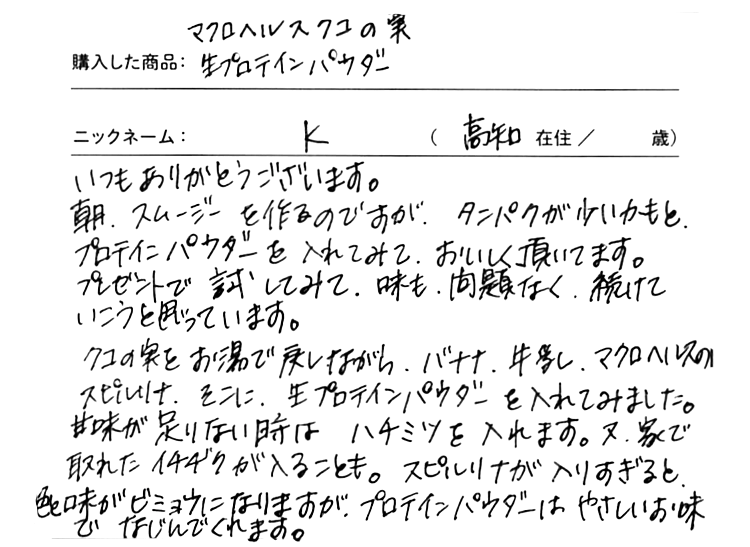 マクロヘルス クコの実
購入した商品： 生プロテインパウダー
ニックネーム： K （ 高知 在住／ 歳）
いつもありがとうございます。
朝、スムージーを作るのですが、タンパクが少いかもと、
プロテインパウダーを入れてみて、おいしく頂いてます。
プレゼントで試してみて、味も、問題なく、続けて
いこうと思っています。
クコの実をお湯で戻しながら、バナナ、牛乳、マクロヘルスの
スピルリナ、そこに、生プロテインパウダーを入れてみました。
甘味が足りない時はハチミツを入れます。又、家で
取れたイチヂクが入ることも。スピルリナが入りすぎると、
色と味がビミョウになりますが、プロテインパウダーはやさしいお味
でなじんでくれます。